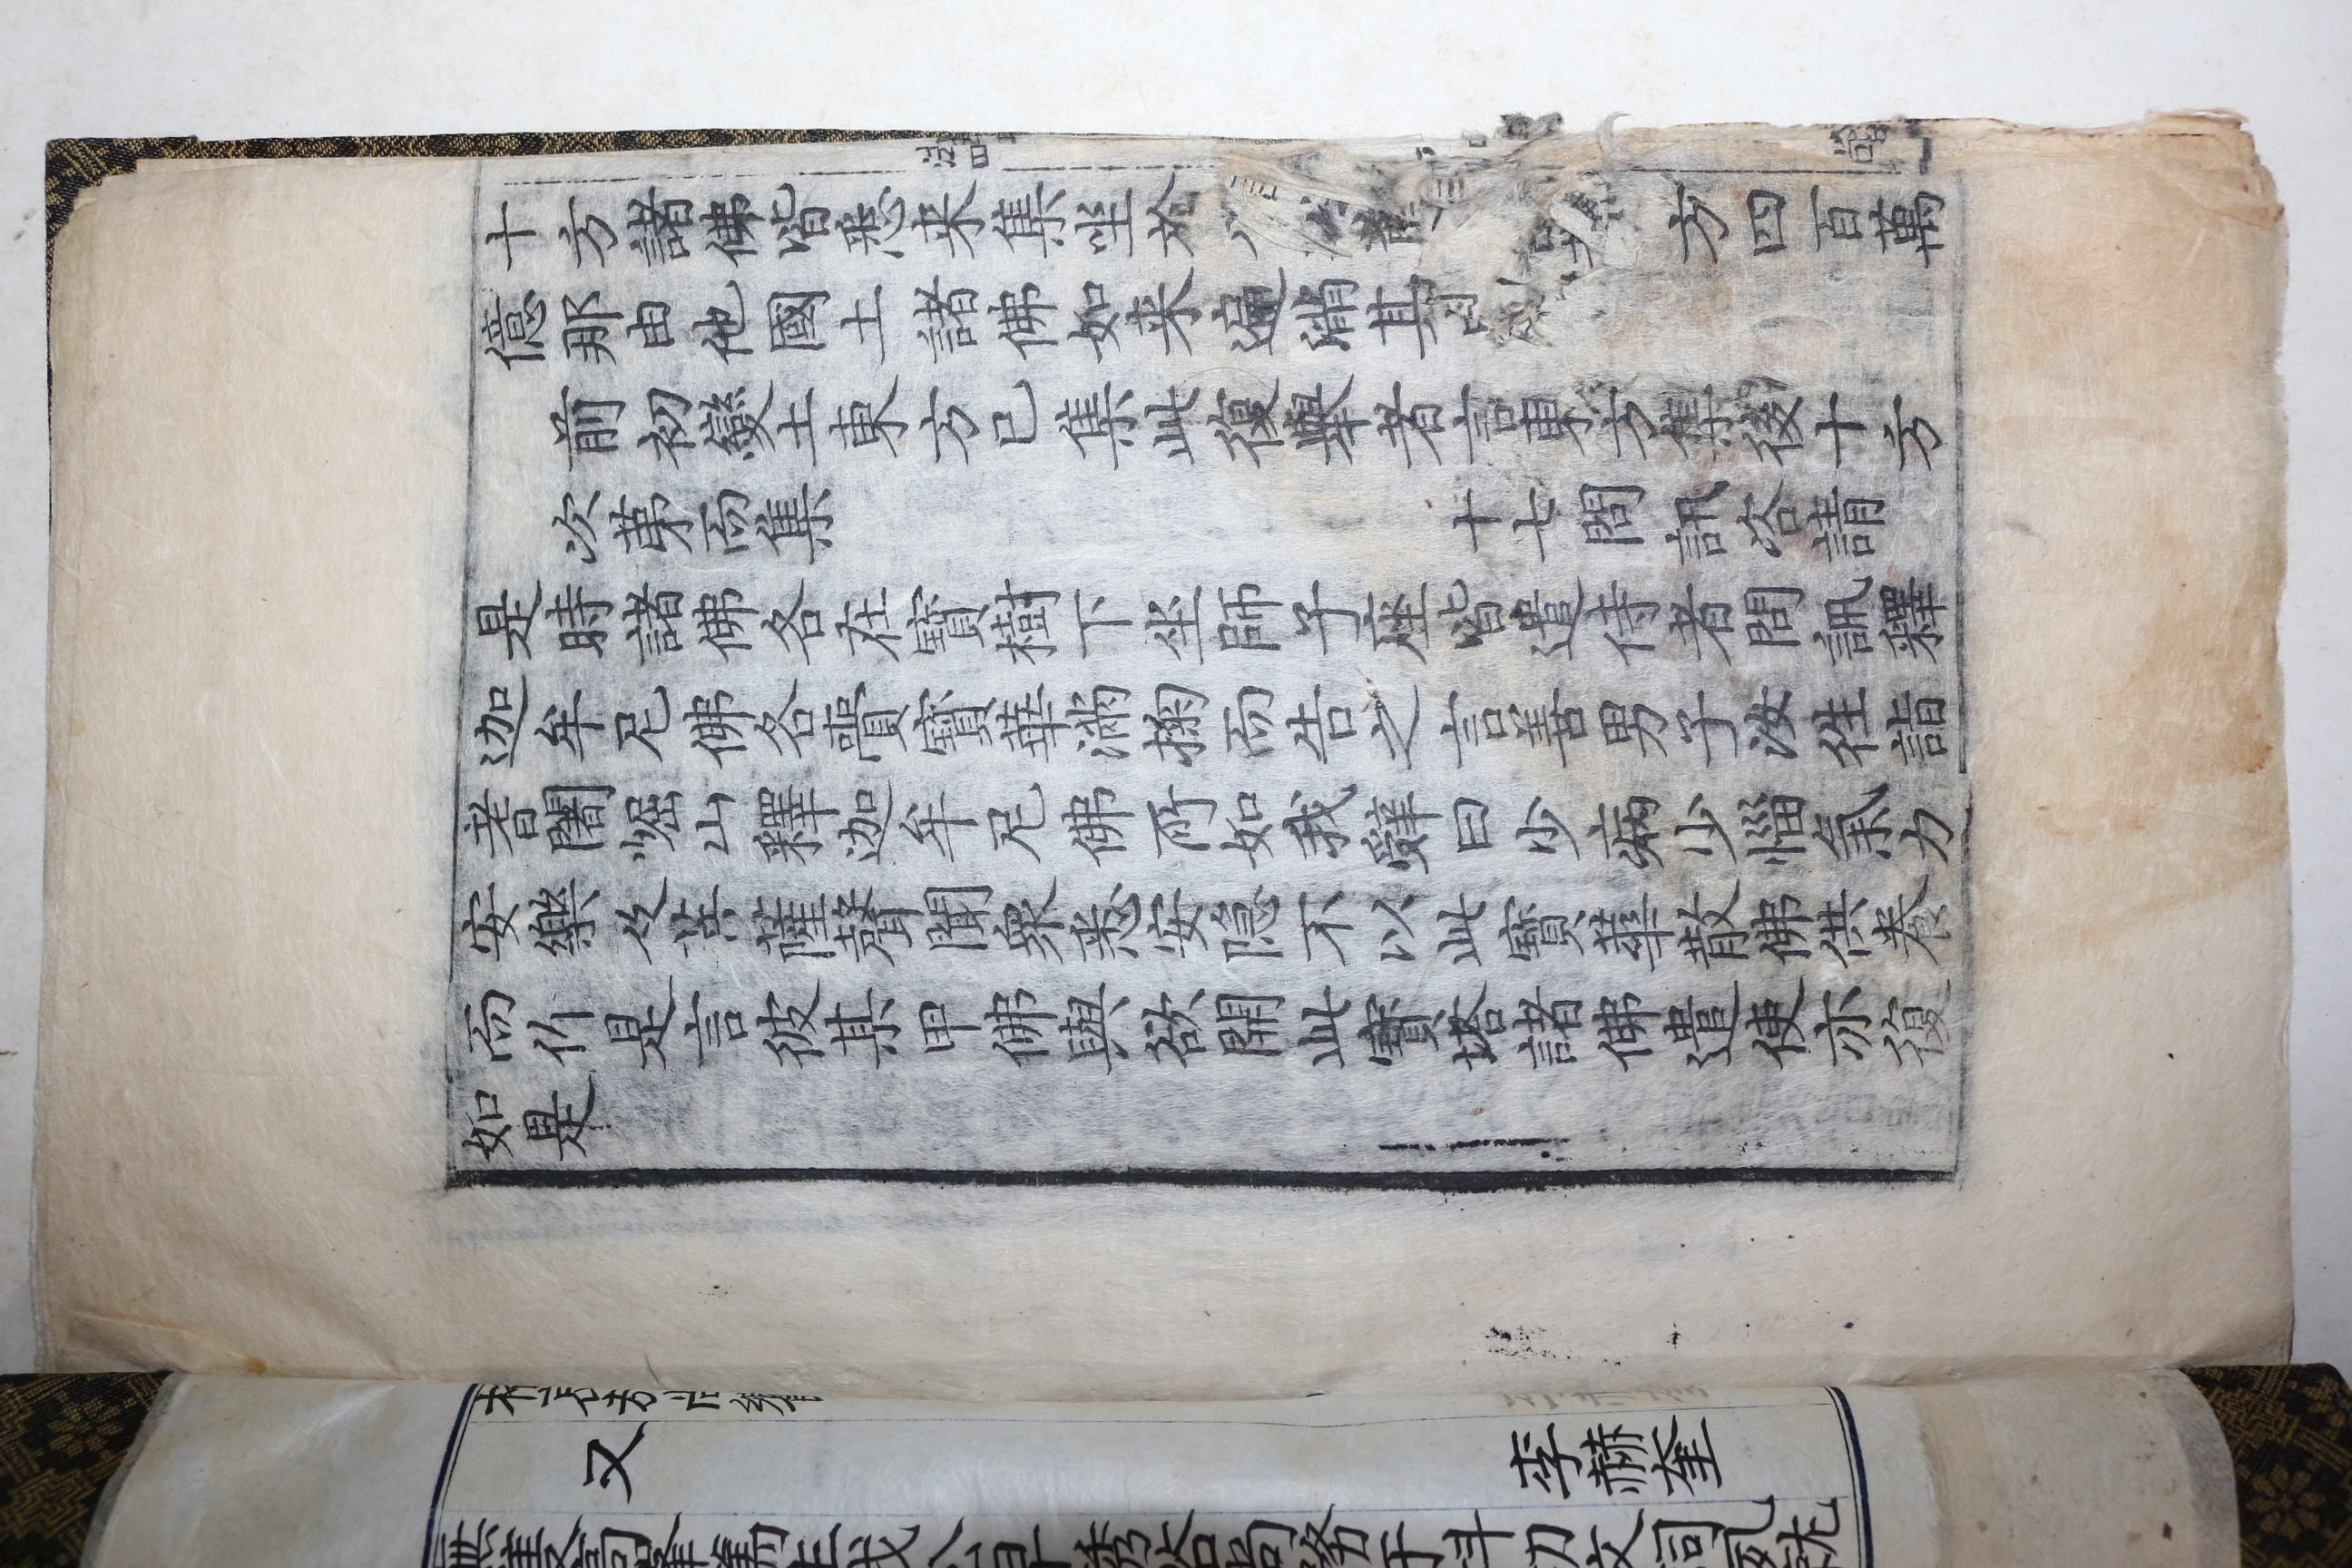 十方諸佛皆悉来集坐於八方四百萬
億那由他國土諸佛如来遍滿其
前初變土東方已集此復舉者言東方集後十方
次第而集 十七問訊咨請
是時諸佛各在寶樹下坐師子座皆遣侍者問訊釋
迦牟尼佛各賷寶華滿掬而告之言善男子汝往詣
耆闍堀山釋迦牟尼佛所如我辝曰少病少惱氣力
安樂及菩薩聲聞衆悉安隱不以此寶華散佛供養
而作是言彼某甲佛與欲開此寶塔諸佛遣使亦復
如是
又 李赫奎